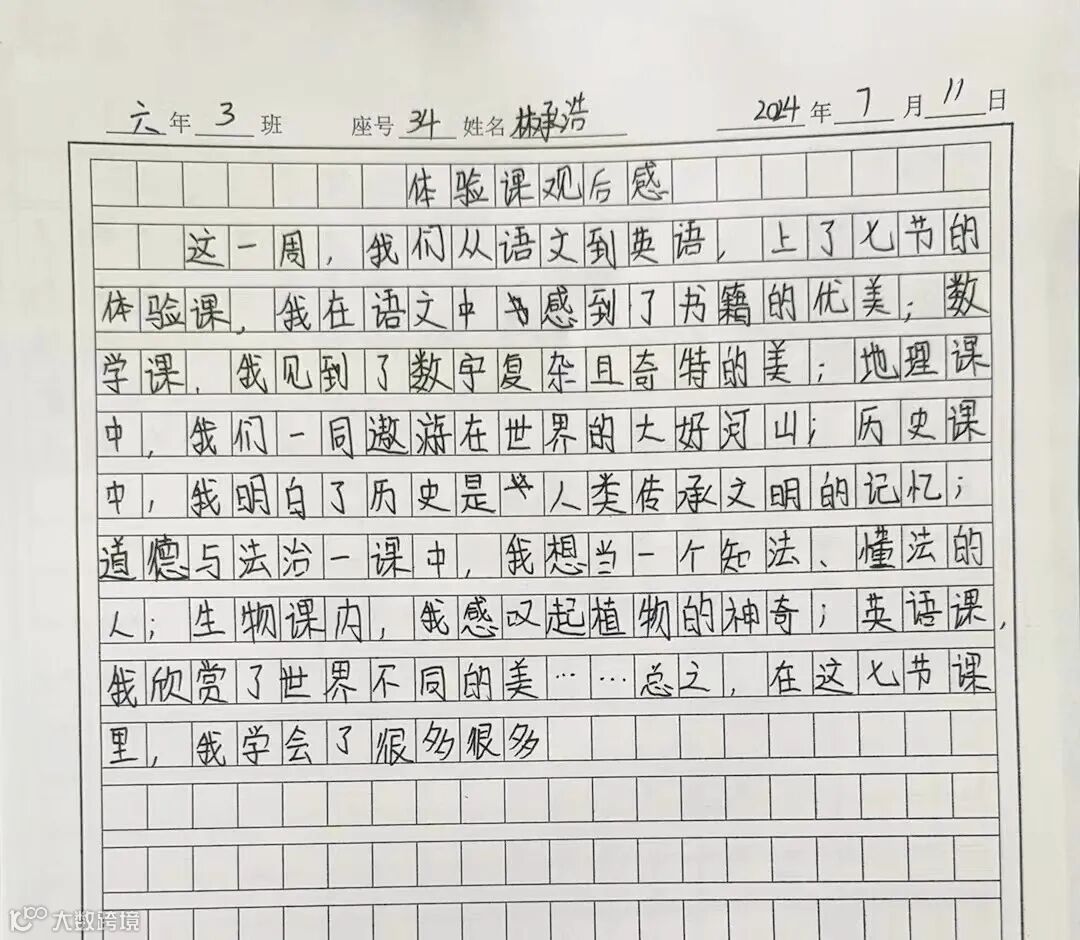 六年3班 座号34姓名林承浩 2024年7月11日
体验课观后感
这一周，我们从语文到英语，上了七节的
体验课，我在语文中感到了书籍的优美；数
学课，我见到了数字复杂且奇特的美；地理课
中，我们一同遨游在世界的大好河山；历史课
中，我明白了历史是人类传承文明的记忆；
道德与法治一课中，我想当一个知法、懂法的
人；生物课内，我感叹起植物的神奇；英语课，
我欣赏了世界不同的美……总之，在这七节课
里，我学会了很多很多
大数跨境